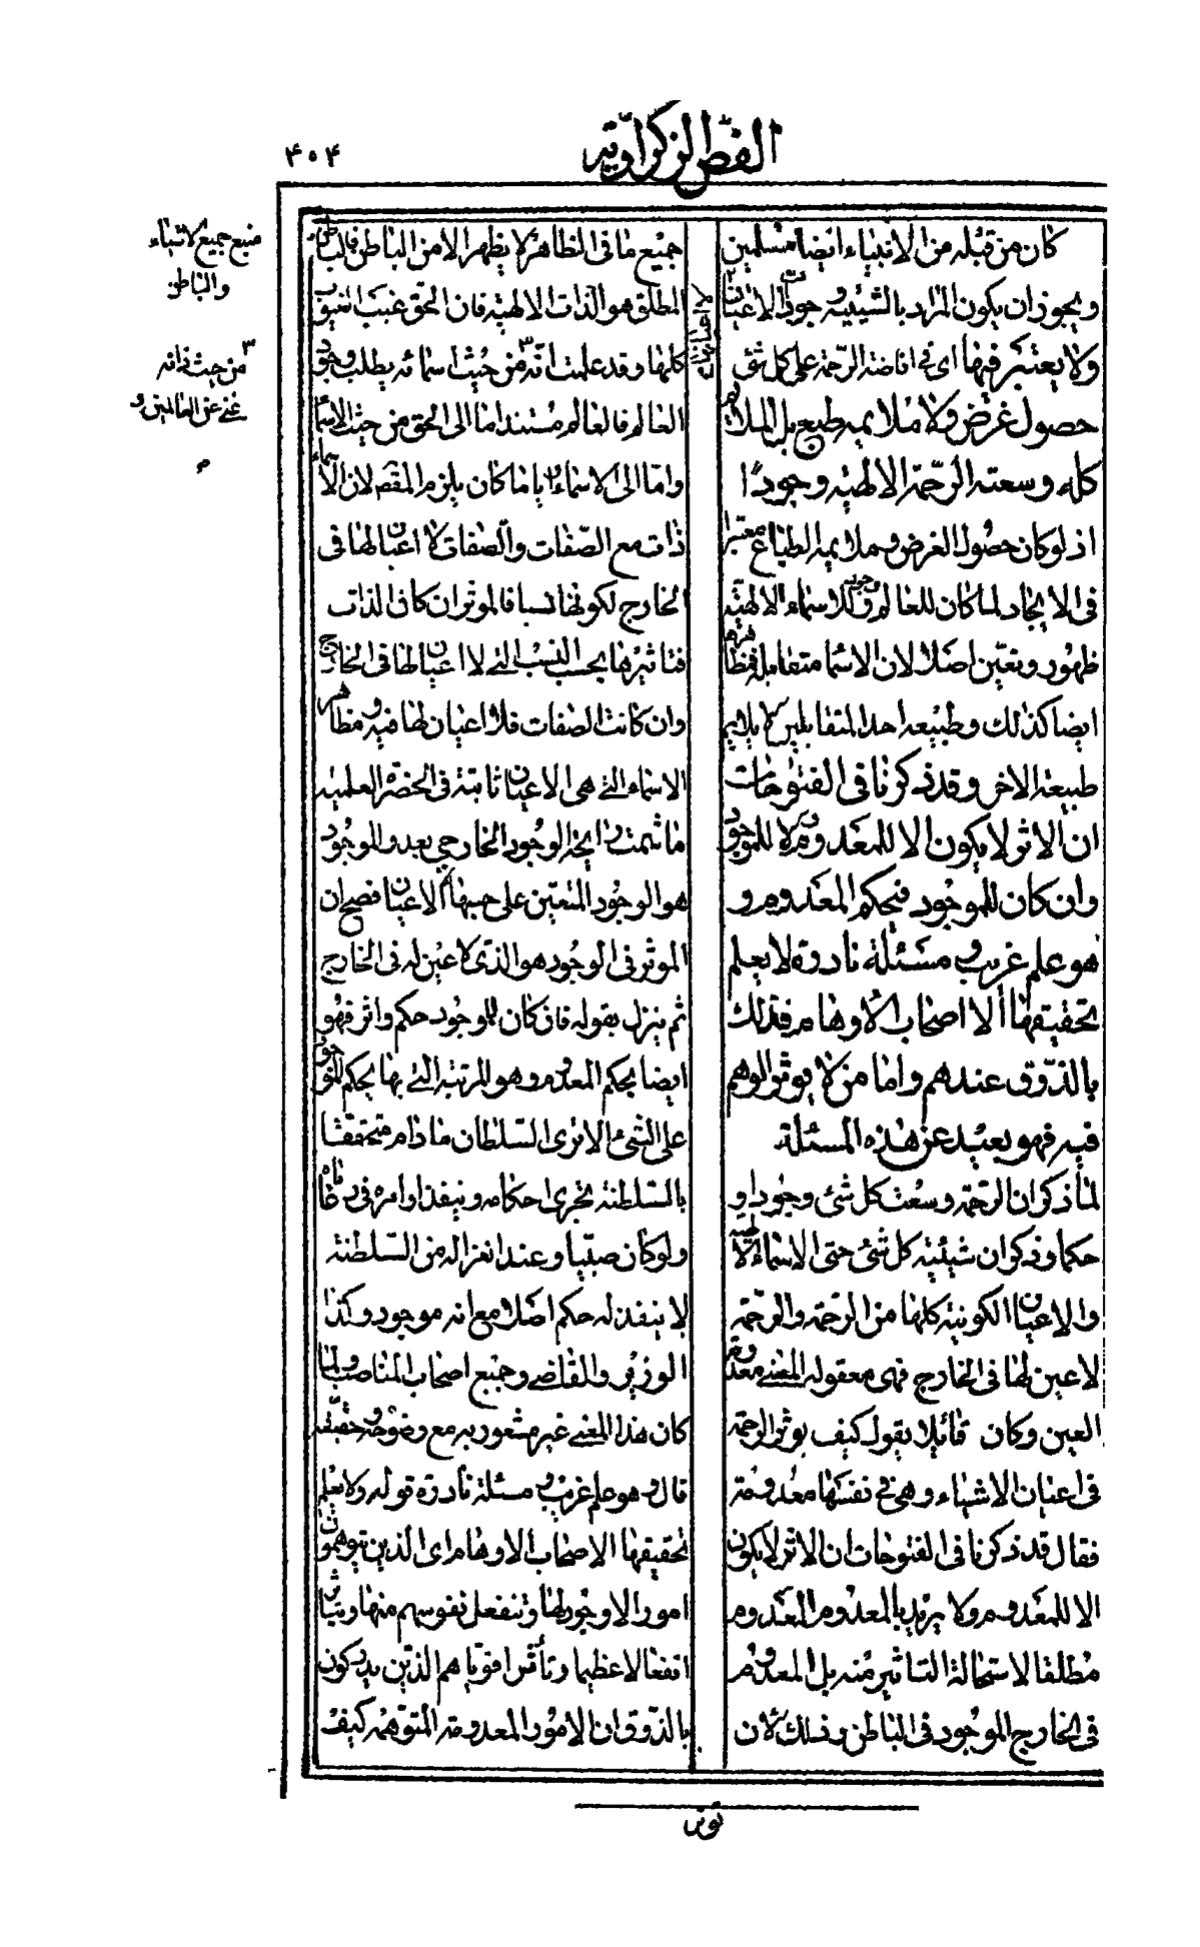 الفص الزكراوية
٤٠٤
كان من قبله من الانبياء ايضا مسلمين
ويجوز ان يكون المراد بالشيئية وجودات الاعيان
ولا يعتبر فيها اى فى افاضة الرحمة على كل شئ
حصول غرض ولا ملايمة طبع بل الملايم
كله وسعته الرحمة الالهية وجودًا
اذ لو كان حصول الغرض وملايمة الطباع معتبرا
فى الايجاد لما كان للعالم وجود وللاسماء الالهيّة
ظهور وتعيّن اصلا لان الاسما متقابلة فمظاهرها
ايضا كذلك وطبيعة احد المتقابلين لا يلايم
طبيعة الاخر وقد ذكرنا فى الفتوحات
ان الاثر لا يكون الا للمعدوم لا للموجود
وان كان للموجود فبحكم المعدوم و
هو علم غريب ومسئلة نادرة لا يعلم
تحقيقها الا اصحاب الاوهام فذلك
بالذوق عندهم واما من لا يوثر الوهم
فيه فهو بعيد عن هذه المسئلة
لما ذكر ان الرحمة وسعت كل شئ وجودا و
حكما وذكر ان شيئية كل شئ حتى الاسماء الالهية
والاعيان الكونية كلها من الرحمة والرحمة
لا عين لها فى الخارج فهى معقولة المعنى معدومة
العين وكان قائلا يقول كيف يوثر الرحمة
فى اعيان الاشياء وهى فى نفسها معدومة
فقال قد ذكرنا فى الفتوحات ان الاثر لا يكون
الا للمعدوم ولا يريد بالمعدوم المعدوم
مطلقا لاستحالة التاثير منه بل المعدوم
فى الخارج الموجود فى الباطن وذلك لان
جميع ما فى الظاهر لا يظهر الا من الباطن فالباطن
المطلق هو الذات الالهية فان الحق غيب الغيوب
كلها وقد علمت انّه ٣ من حيث اسمائه يطلب وجود
العالم فالعالم مستند اما الى الحق من حيث الاسماء
واما الى الاسماء ايا ما كان يلزم المقصد لان الاسماء
ذات مع الصفات والصفات لا اعيان لها فى
الخارج لكونها نسبا فالموثر ان كان الذات
فتاثيرها بحسب النسب التى لا اعيان لها فى الخارج
وان كانت الصفات فلا اعيان لها فيه ومظاهر
الاسماء التى هى الاعيان ثابتة فى الحضرة العلمية
ما شمت رايحة الوجود الخارجى بعد والموجود
هو الوجود المتعين على حسبها لا الاعيان فصح ان
الموثر فى الوجود هو الذى لا عين له فى الخارج
ثم ينزل بقوله فان كان للوجود حكم واثر فهو
ايضا بحكم المعدوم وهو المرتبة التى بها يحكم للموجود
على الشئ الا ترى السلطان ما دام متحققا
بالسلطنة يجرى احكامه وينفذ اوامره فى رعاياه
ولو كان صبيا وعند انعزاله من السلطنة
لا ينفذ له حكم اصلا مع انه موجود وكذا
الوزير والقاضى وجميع اصحاب المناصب ولما
كان هذا المعنى غير مشعور به مع وضوحه وحقيقته
قال وهو علم غريب ومسئلة نادرة قوله ولا يعلم
تحقيقها الا اصحاب الاوهام اى الذين يتوهمون
امورا لا وجود لها وتنفعل نفوسهم منها ويتاثر
انفعالا عظيما وتأثرا قويا هم الذين يدركون
بالذوق ان الامور المعدومة المتوهمة كيف
منبع جميع الاشياء
والباطن
٣ من حيث ذاته
غنى عن العالمين و
م
توثر